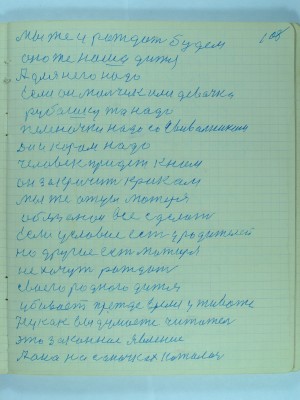 мы же и рождат будем
оно же наша дитя
А для него надо
если он малчик или девочка
рубашки та надо
пеленочки надо со свивалником
как надо
человек придет к нам
он закричит криком
мы же отец матиря
обязаной все сделат
если условие ест у родителей
но другие ест матиря
не хочут рождат
своего родного дитя
убивает прежде время у животе
Ну как вы думаете читател
это законное явление